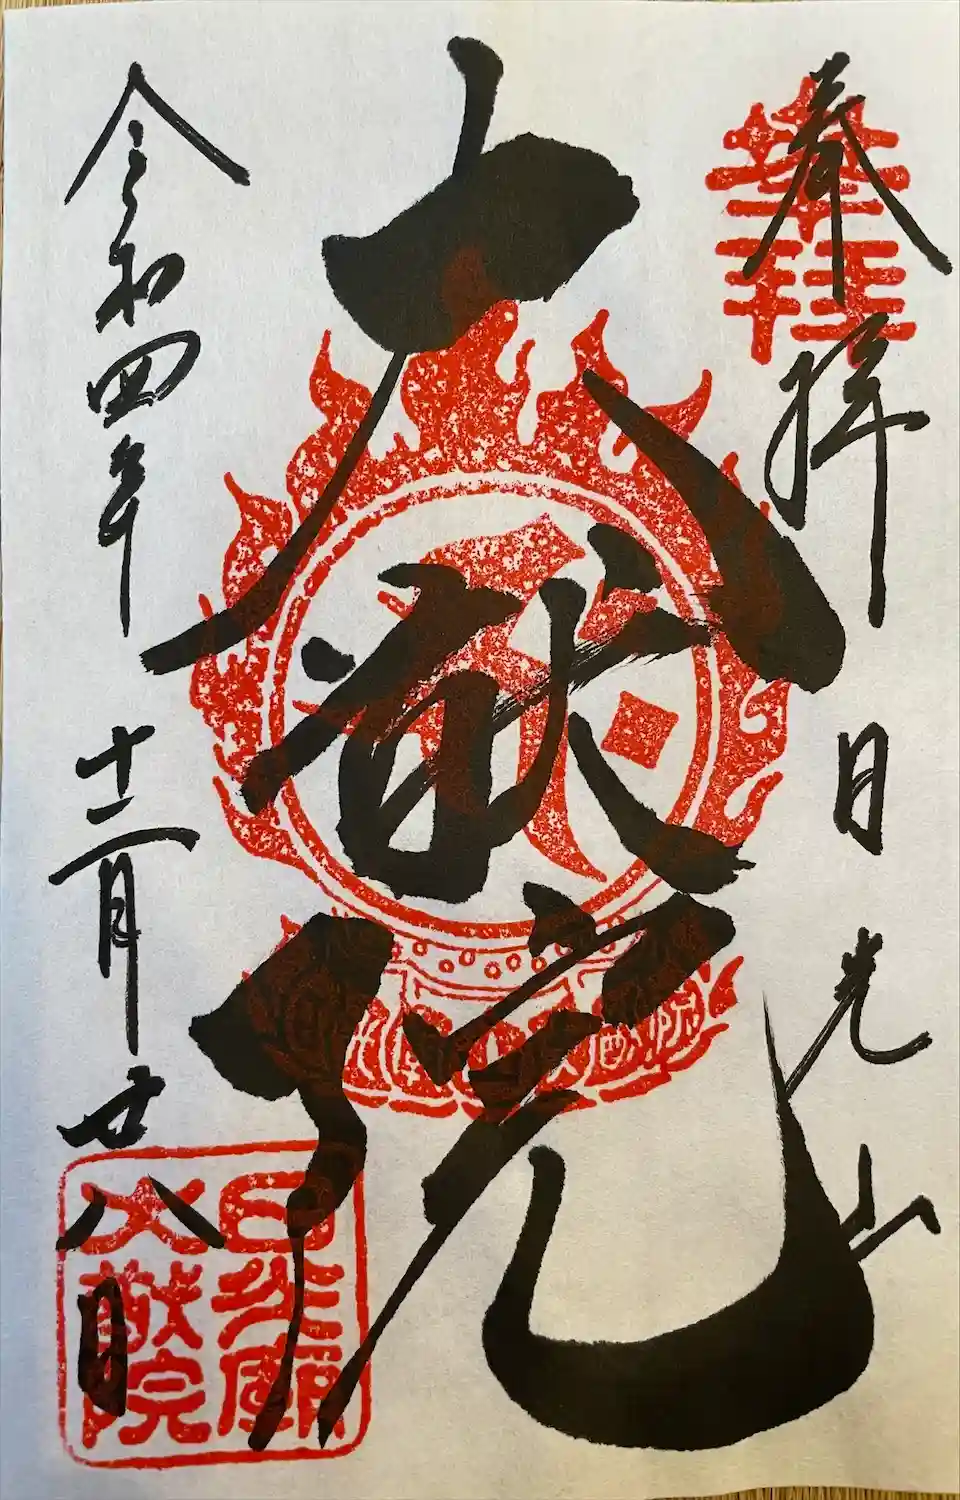 奉拝 日光山
大猷院
令和四年十二月廿八日
日光廟
大猷院